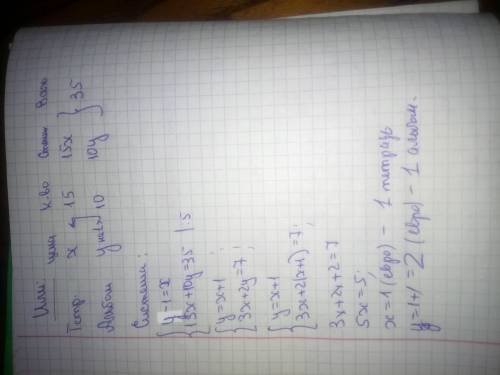 Или: цена к.во стоим. Всего
Тетр. x 15 15x } 35
Альбом y 10 10y
Система:
{ y-1=x
{ 15x+10y=35 |:5
{ y=x+1
{ 3x+2y=7;
{ y=x+1
{ 3x+2(x+1)=7;
3x+2x+2=7
5x=5;
x=1 (евро) - 1 тетрадь
y=1+1=2 (евро) - 1 альбом.